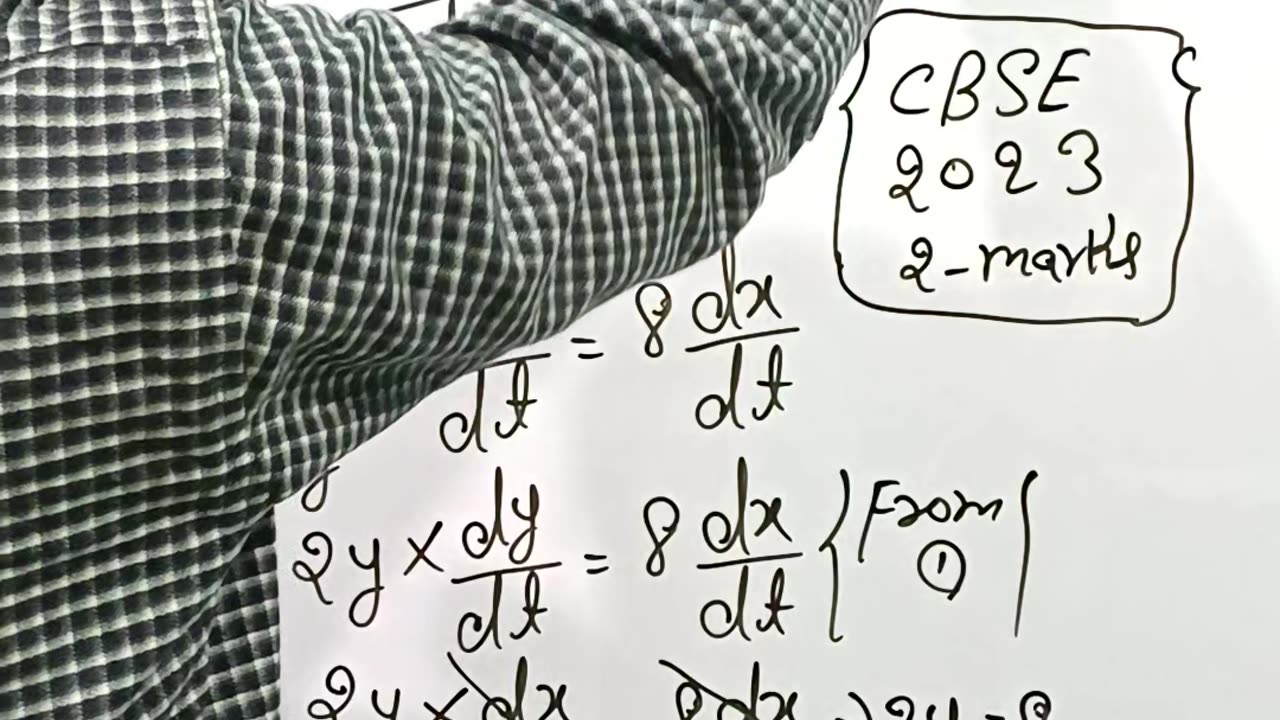 CBSE
2023
2-marks
dt = 8 dx/dt
2y × dy/dt = 8 dx/dt {From ①}
2y × dx 8 dx 2y = 8